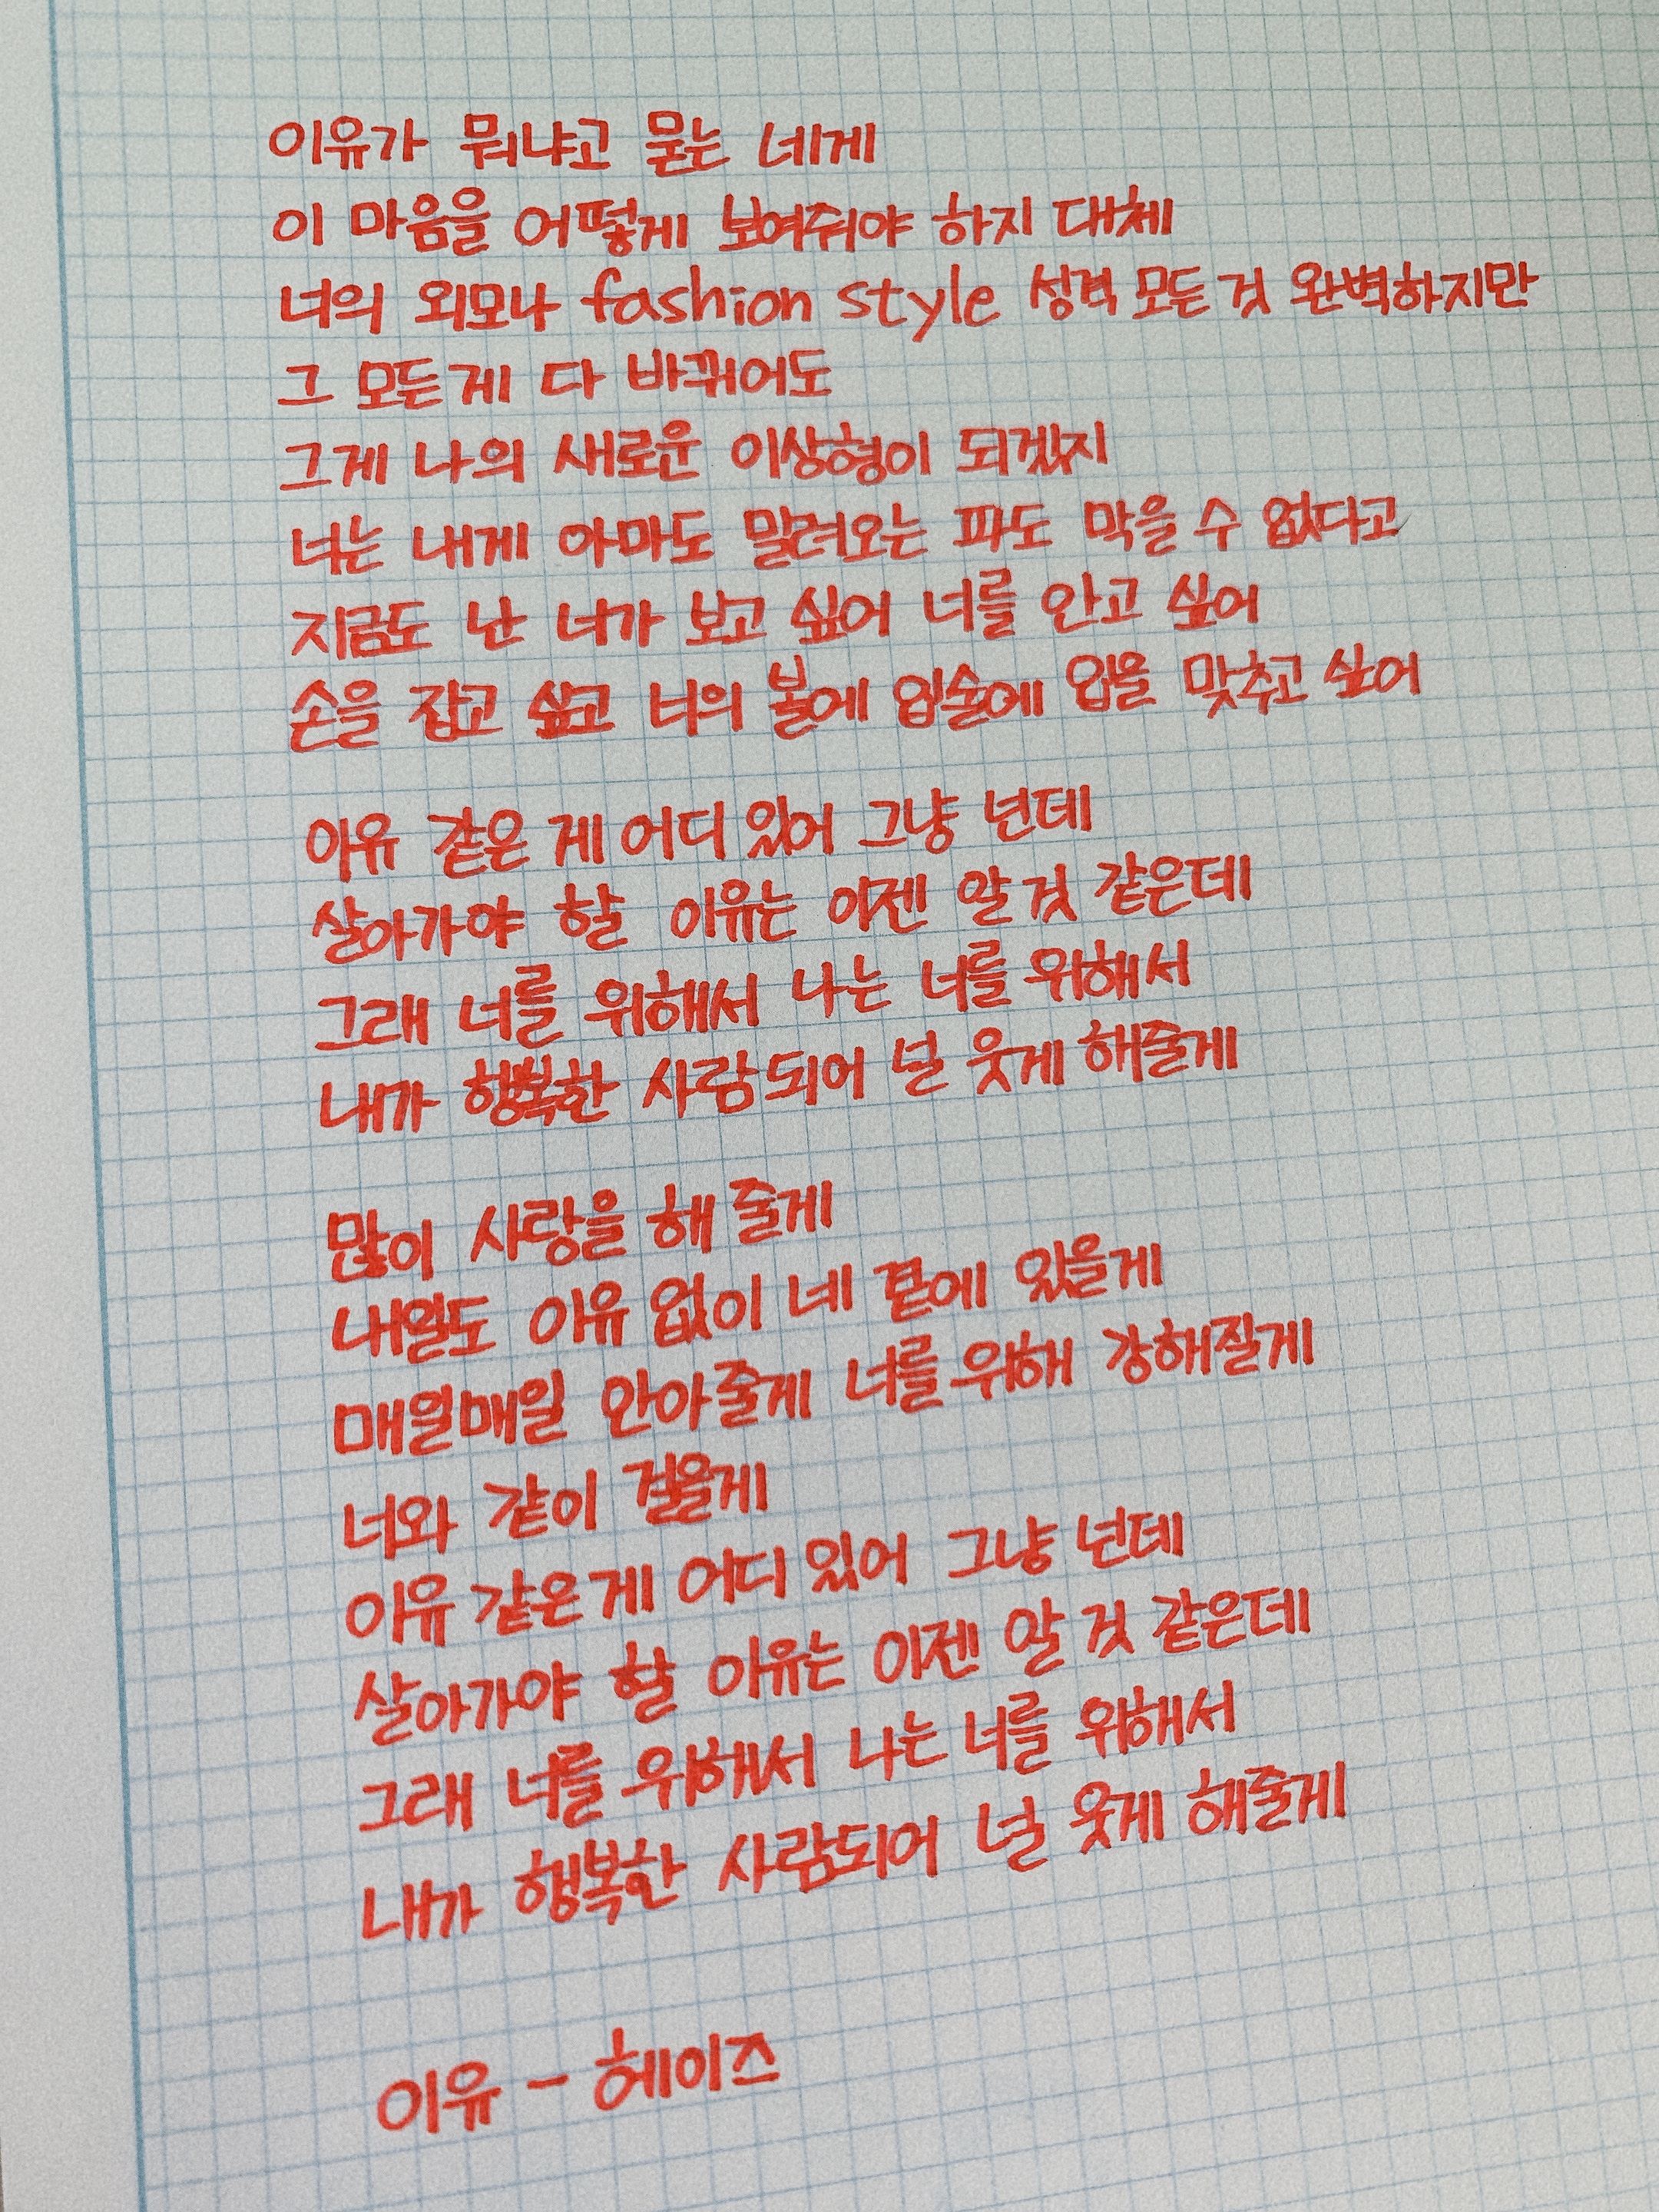 이유가 뭐냐고 묻는 네게
이 마음을 어떻게 보여줘야 하지 대체
너의 외모나 fashion style 성격 모든 것 완벽하지만
그 모든게 다 바뀌어도
그게 나의 새로운 이상형이 되겠지
너는 내게 아마도 밀려오는 파도 막을 수 없다고
지금도 난 너가 보고 싶어 너를 안고 싶어
손을 잡고 싶고 너의 볼에 입술에 입을 맞추고 싶어
이유 같은 게 어디 있어 그냥 넌데
살아가야 할 이유는 이젠 알 것 같은데
그래 너를 위해서 나는 너를 위해서
내가 행복한 사람되어 널 웃게 해줄게
많이 사랑을 해 줄게
내일도 이유 없이 네 곁에 있을게
매일매일 안아줄게 너를 위해 강해질게
너와 같이 걸을게
이유 같은게 어디 있어 그냥 넌데
살아가야 할 이유는 이젠 알 것 같은데
그래 너를 위해서 나는 너를 위해서
내가 행복한 사람되어 널 웃게 해줄게
이유 - 헤이즈